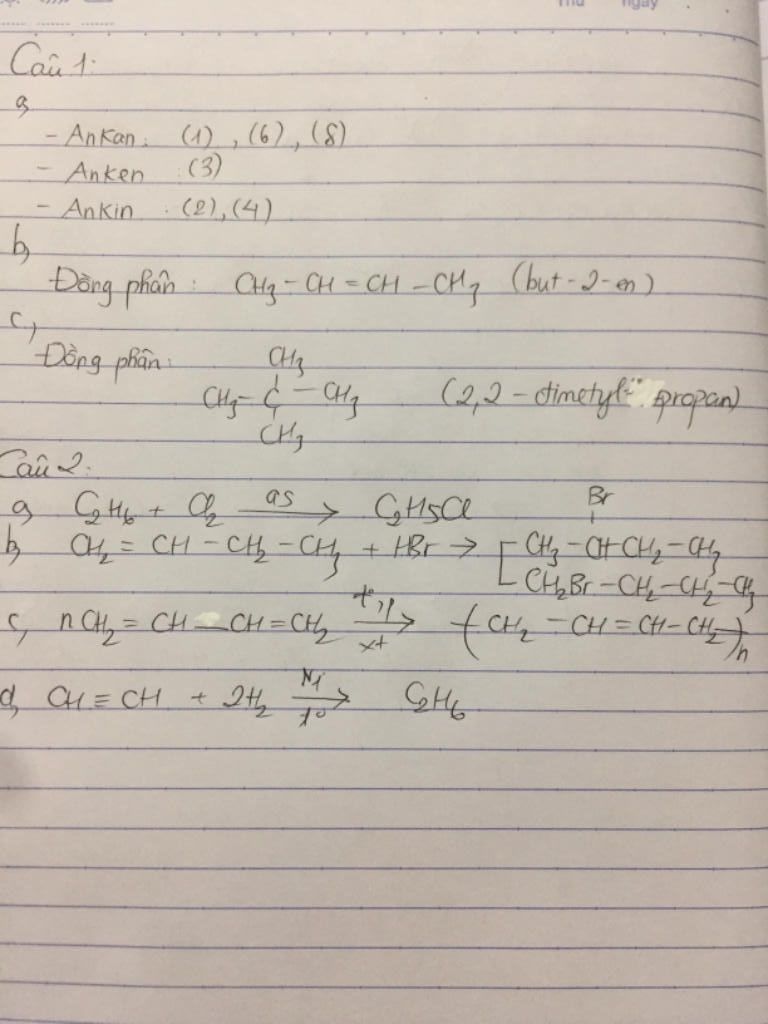 Thứ ngày
Câu 1:
a,
- Ankan: (1), (6), (8)
- Anken: (3)
- Ankin: (2), (4)
b,
Đồng phân: CH3 - CH = CH - CH3 (but-2-en)
c,
Đồng phân:
CH3
CH3 - C - CH3 (2,2-đimetyl propan)
CH3
Câu 2:
Br
a, C2H6 + Cl2 as → C2H5Cl
b, CH2 = CH - CH2 - CH3 + HBr → CH3 - CH CH2 - CH3
CH2Br - CH2 - CH2 - CH3
c, nCH2 = CH - CH = CH2 t°, p xt → ( CH2 - CH = CH - CH2 )n
d, CH ≡ CH + 2H2 Ni t° → C2H6